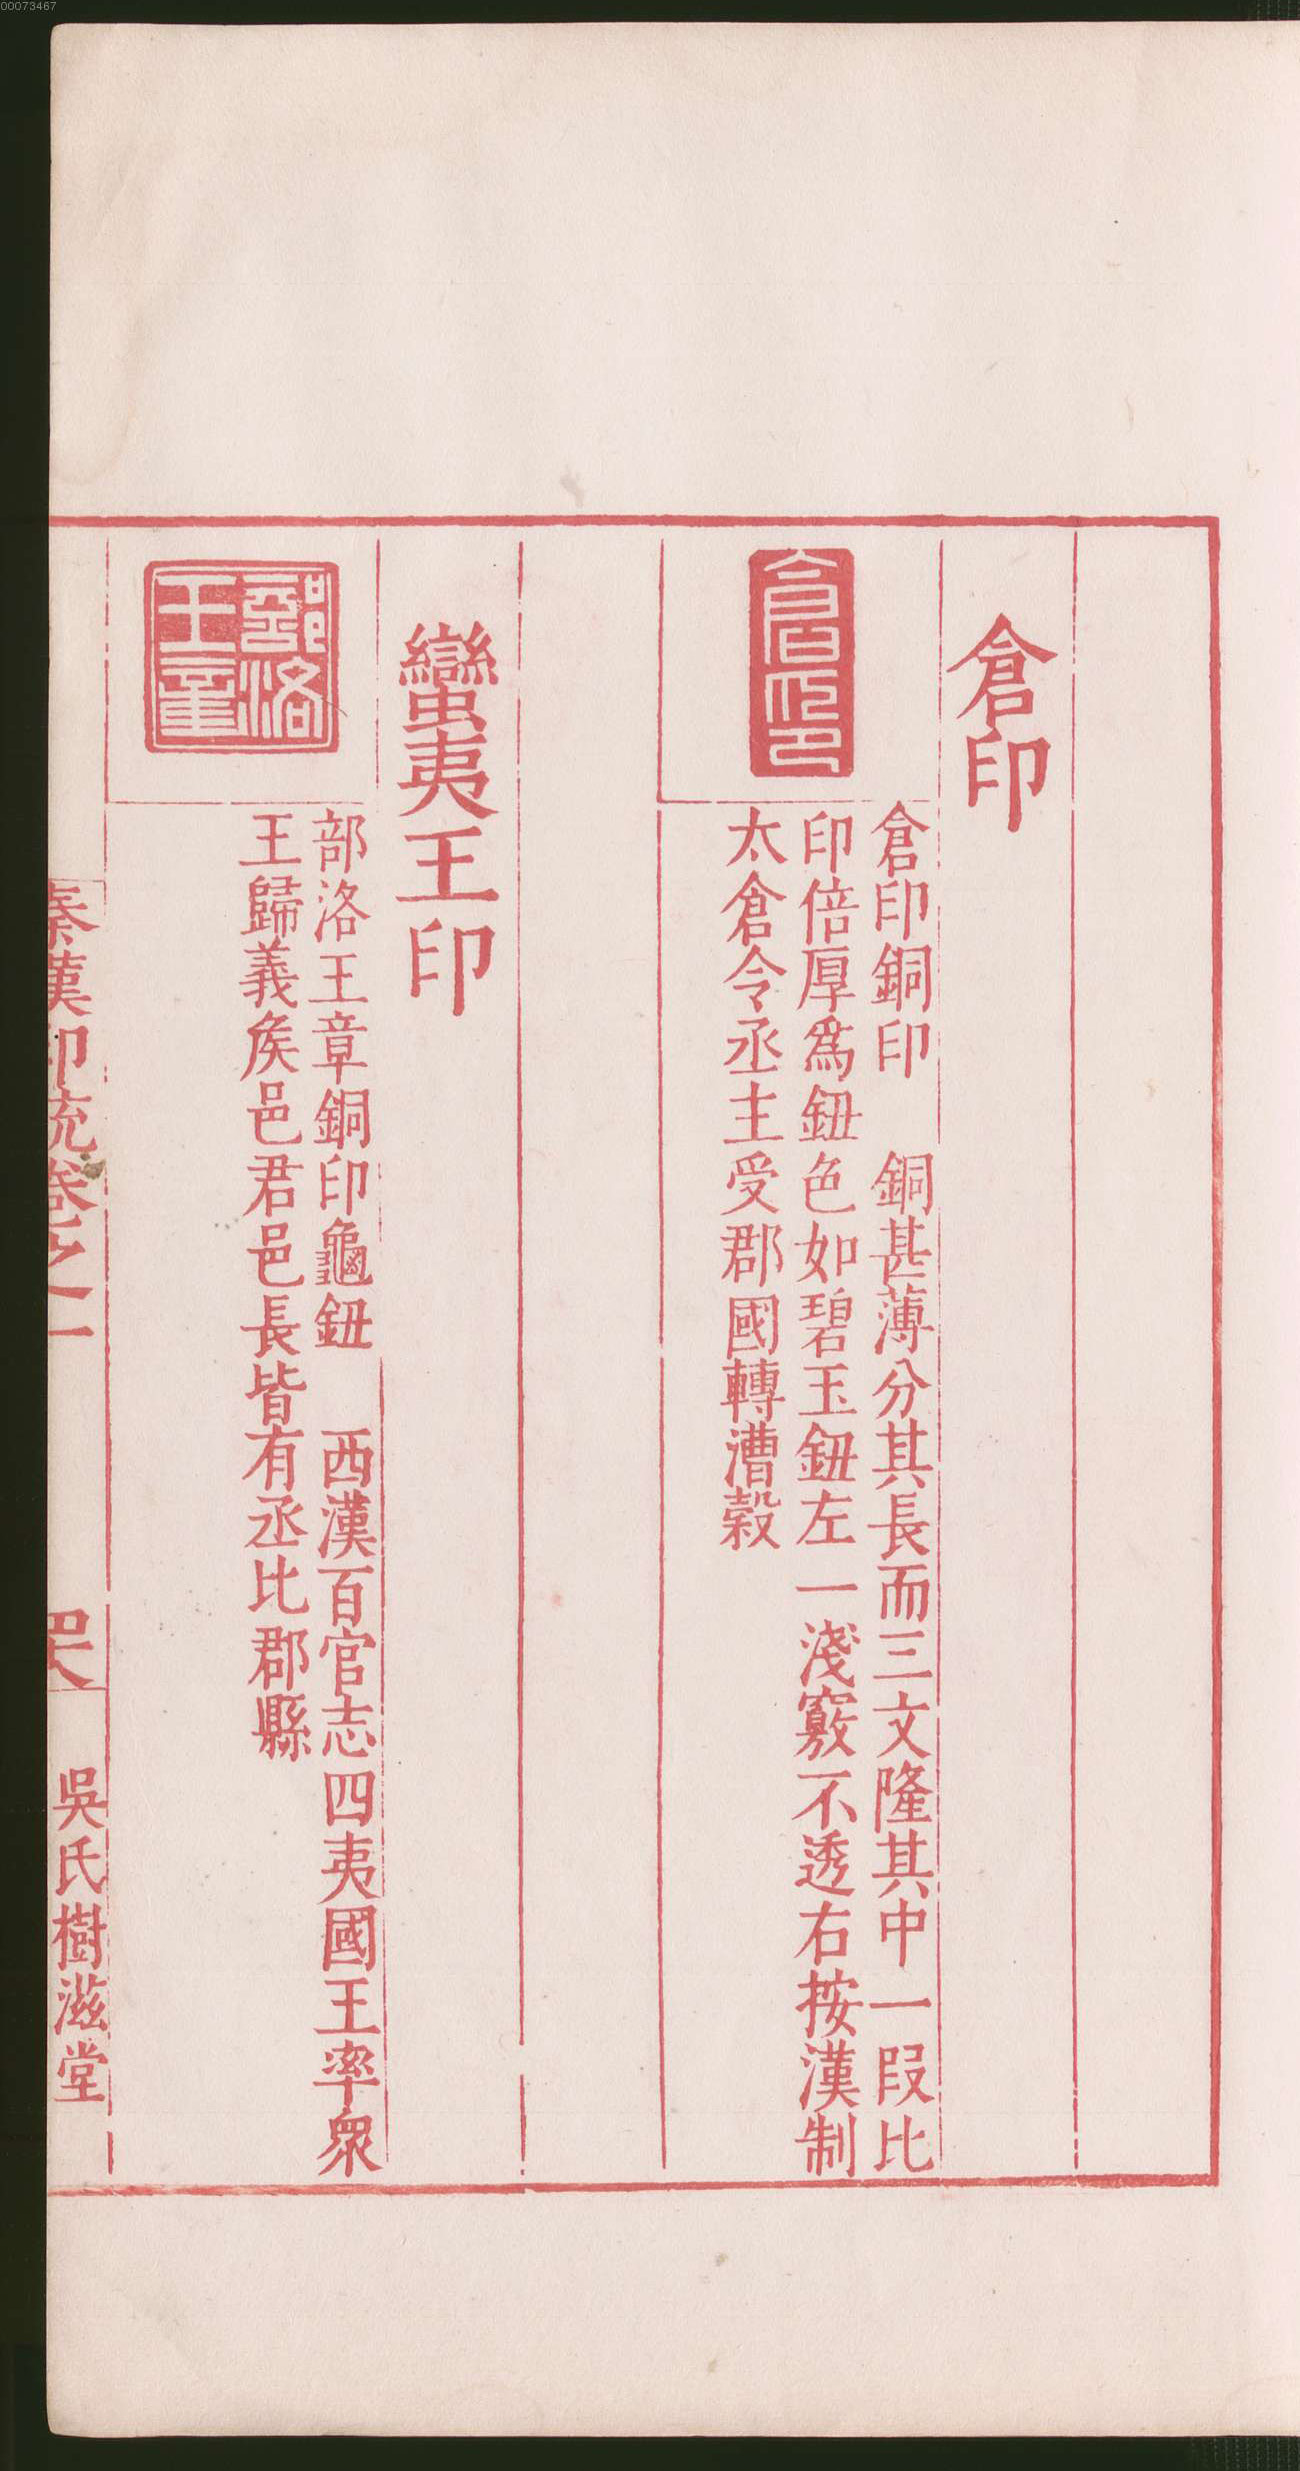 00073467
倉印
倉印
倉印銅印　銅甚薄分其長而三文隆其中一段比
印倍厚爲鈕色如碧玉鈕左一淺竅不透右按漢制
太倉令丞主受郡國轉漕穀
蠻夷王印
部洛
王章
部洛王章銅印龜鈕　西漢百官志四夷國王率衆
王歸義矦邑君邑長皆有丞比郡縣
秦漢印統卷之一
吳氏樹滋堂